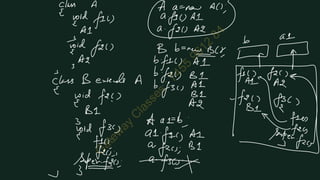 class A
{
void f1()
{
A1
}
void f2()
{
A2
}
}
class B extends A
{
void f2()
{
B1
}
void f3()
{
f1()
f2()
super.f2();
}
}
A a=new A();
a.f1() A1
a.f2() A2
B b=new B();
b.f1() A1
b.f2() B1
b.f3() A1
B1
A2
A a1=b;
a1.f1() A1
a1.f2() B1
a.f3()
b a1
f1() f2()
A1 A2
f2() f3()
B1 {
f1()
f2()
super.f2()